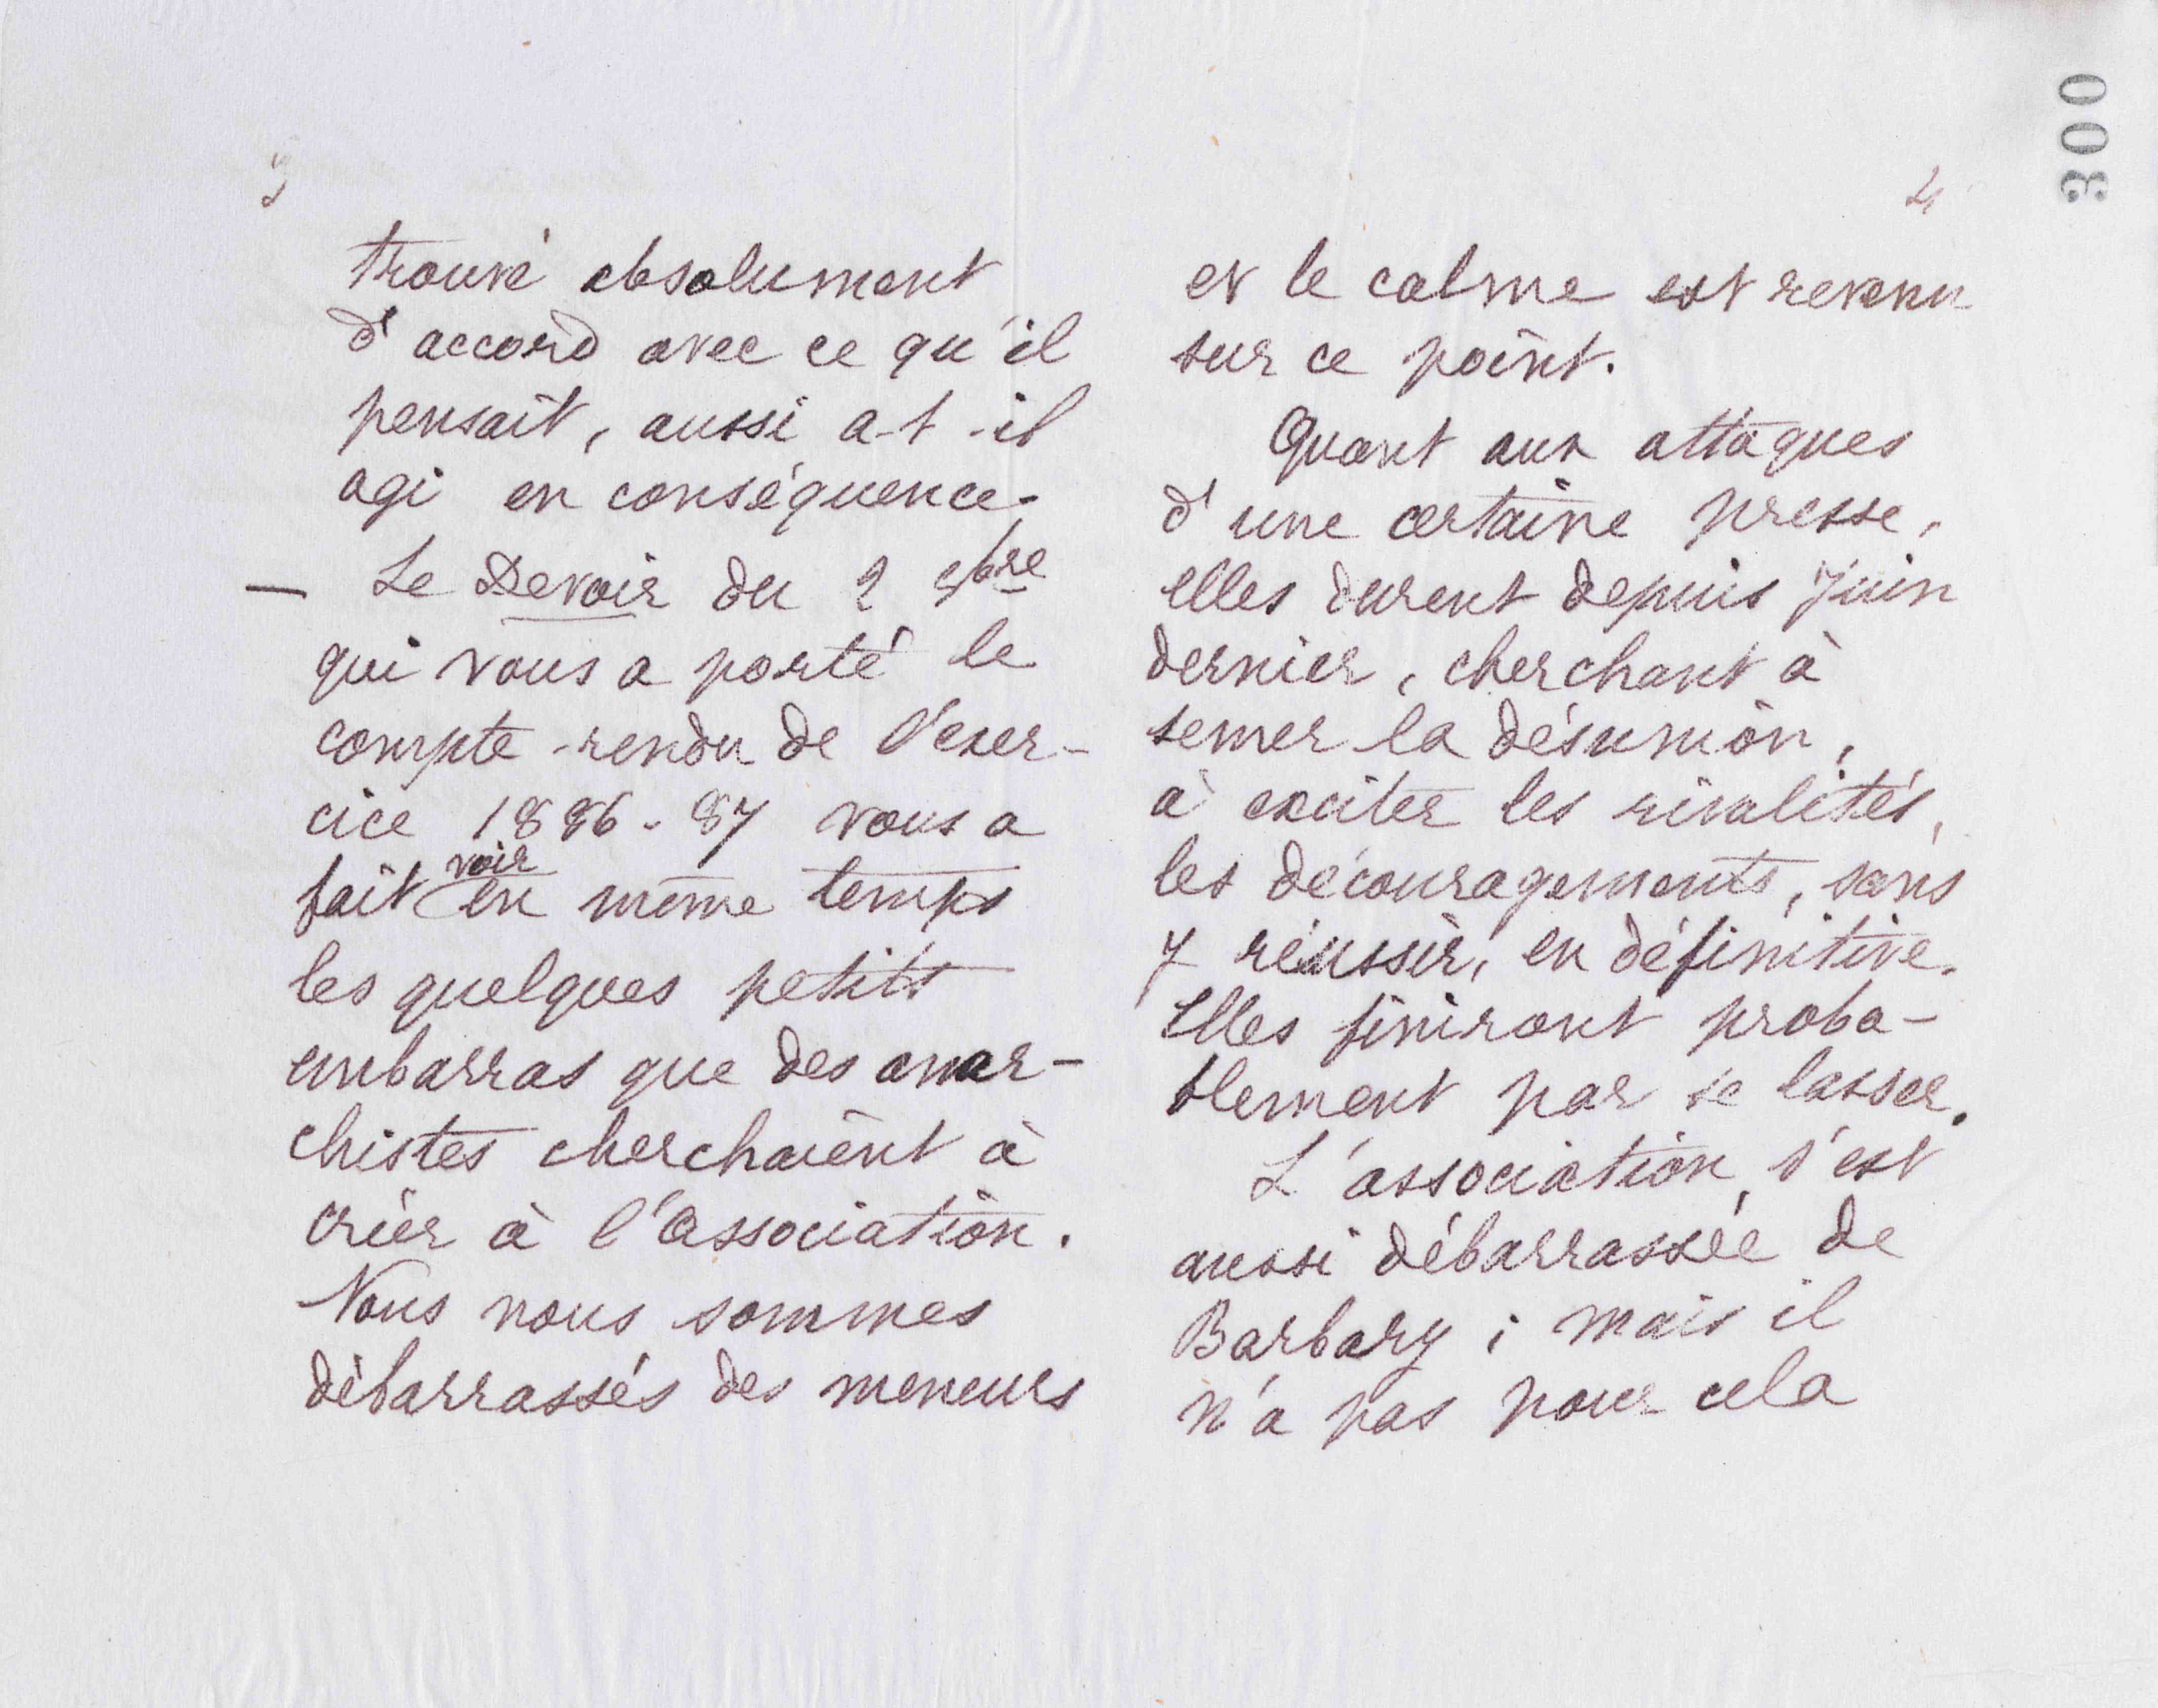 3
trouvé absolument
d'accord avec ce qu'il
pensait, aussi a-t-il
agi en conséquence.
— Le Devoir du 2 9bre
qui vous a porté le
compte-rendu de l'exer-
cice 1886-87 vous a
fait voir en même temps
les quelques petits
embarras que des anar-
chistes cherchaient à
créer à l'association.
Nous nous sommes
débarrassés des meneurs
300
4
et le calme est revenu
sur ce point.
Quant aux attaques
d'une certaine presse,
elles durent depuis Juin
dernier, cherchant à
semer la désunion,
à exciter les rivalités,
les découragements, sans
y réussir, en définitive.
Elles finiront proba-
blement par se lasser.
L'association s'est
aussi débarrassée de
Barbary ; mais il
n'a pas pour cela